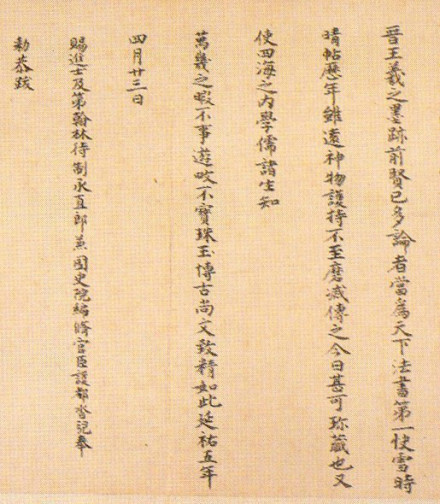 晉王羲之墨跡前賢已多論者當為天下法書第一快雪時
晴帖歷年雖遠神物護持不至磨滅傳之今日甚可珎藏也又
使四海之內學儒諸生知
萬幾之暇不事遊畋不寶珠玉博古尚文致精如此延祐五年
四月廿三日
賜進士及第翰林待制承直郎兼國史院編脩官臣護都沓兒奉
勅恭跋